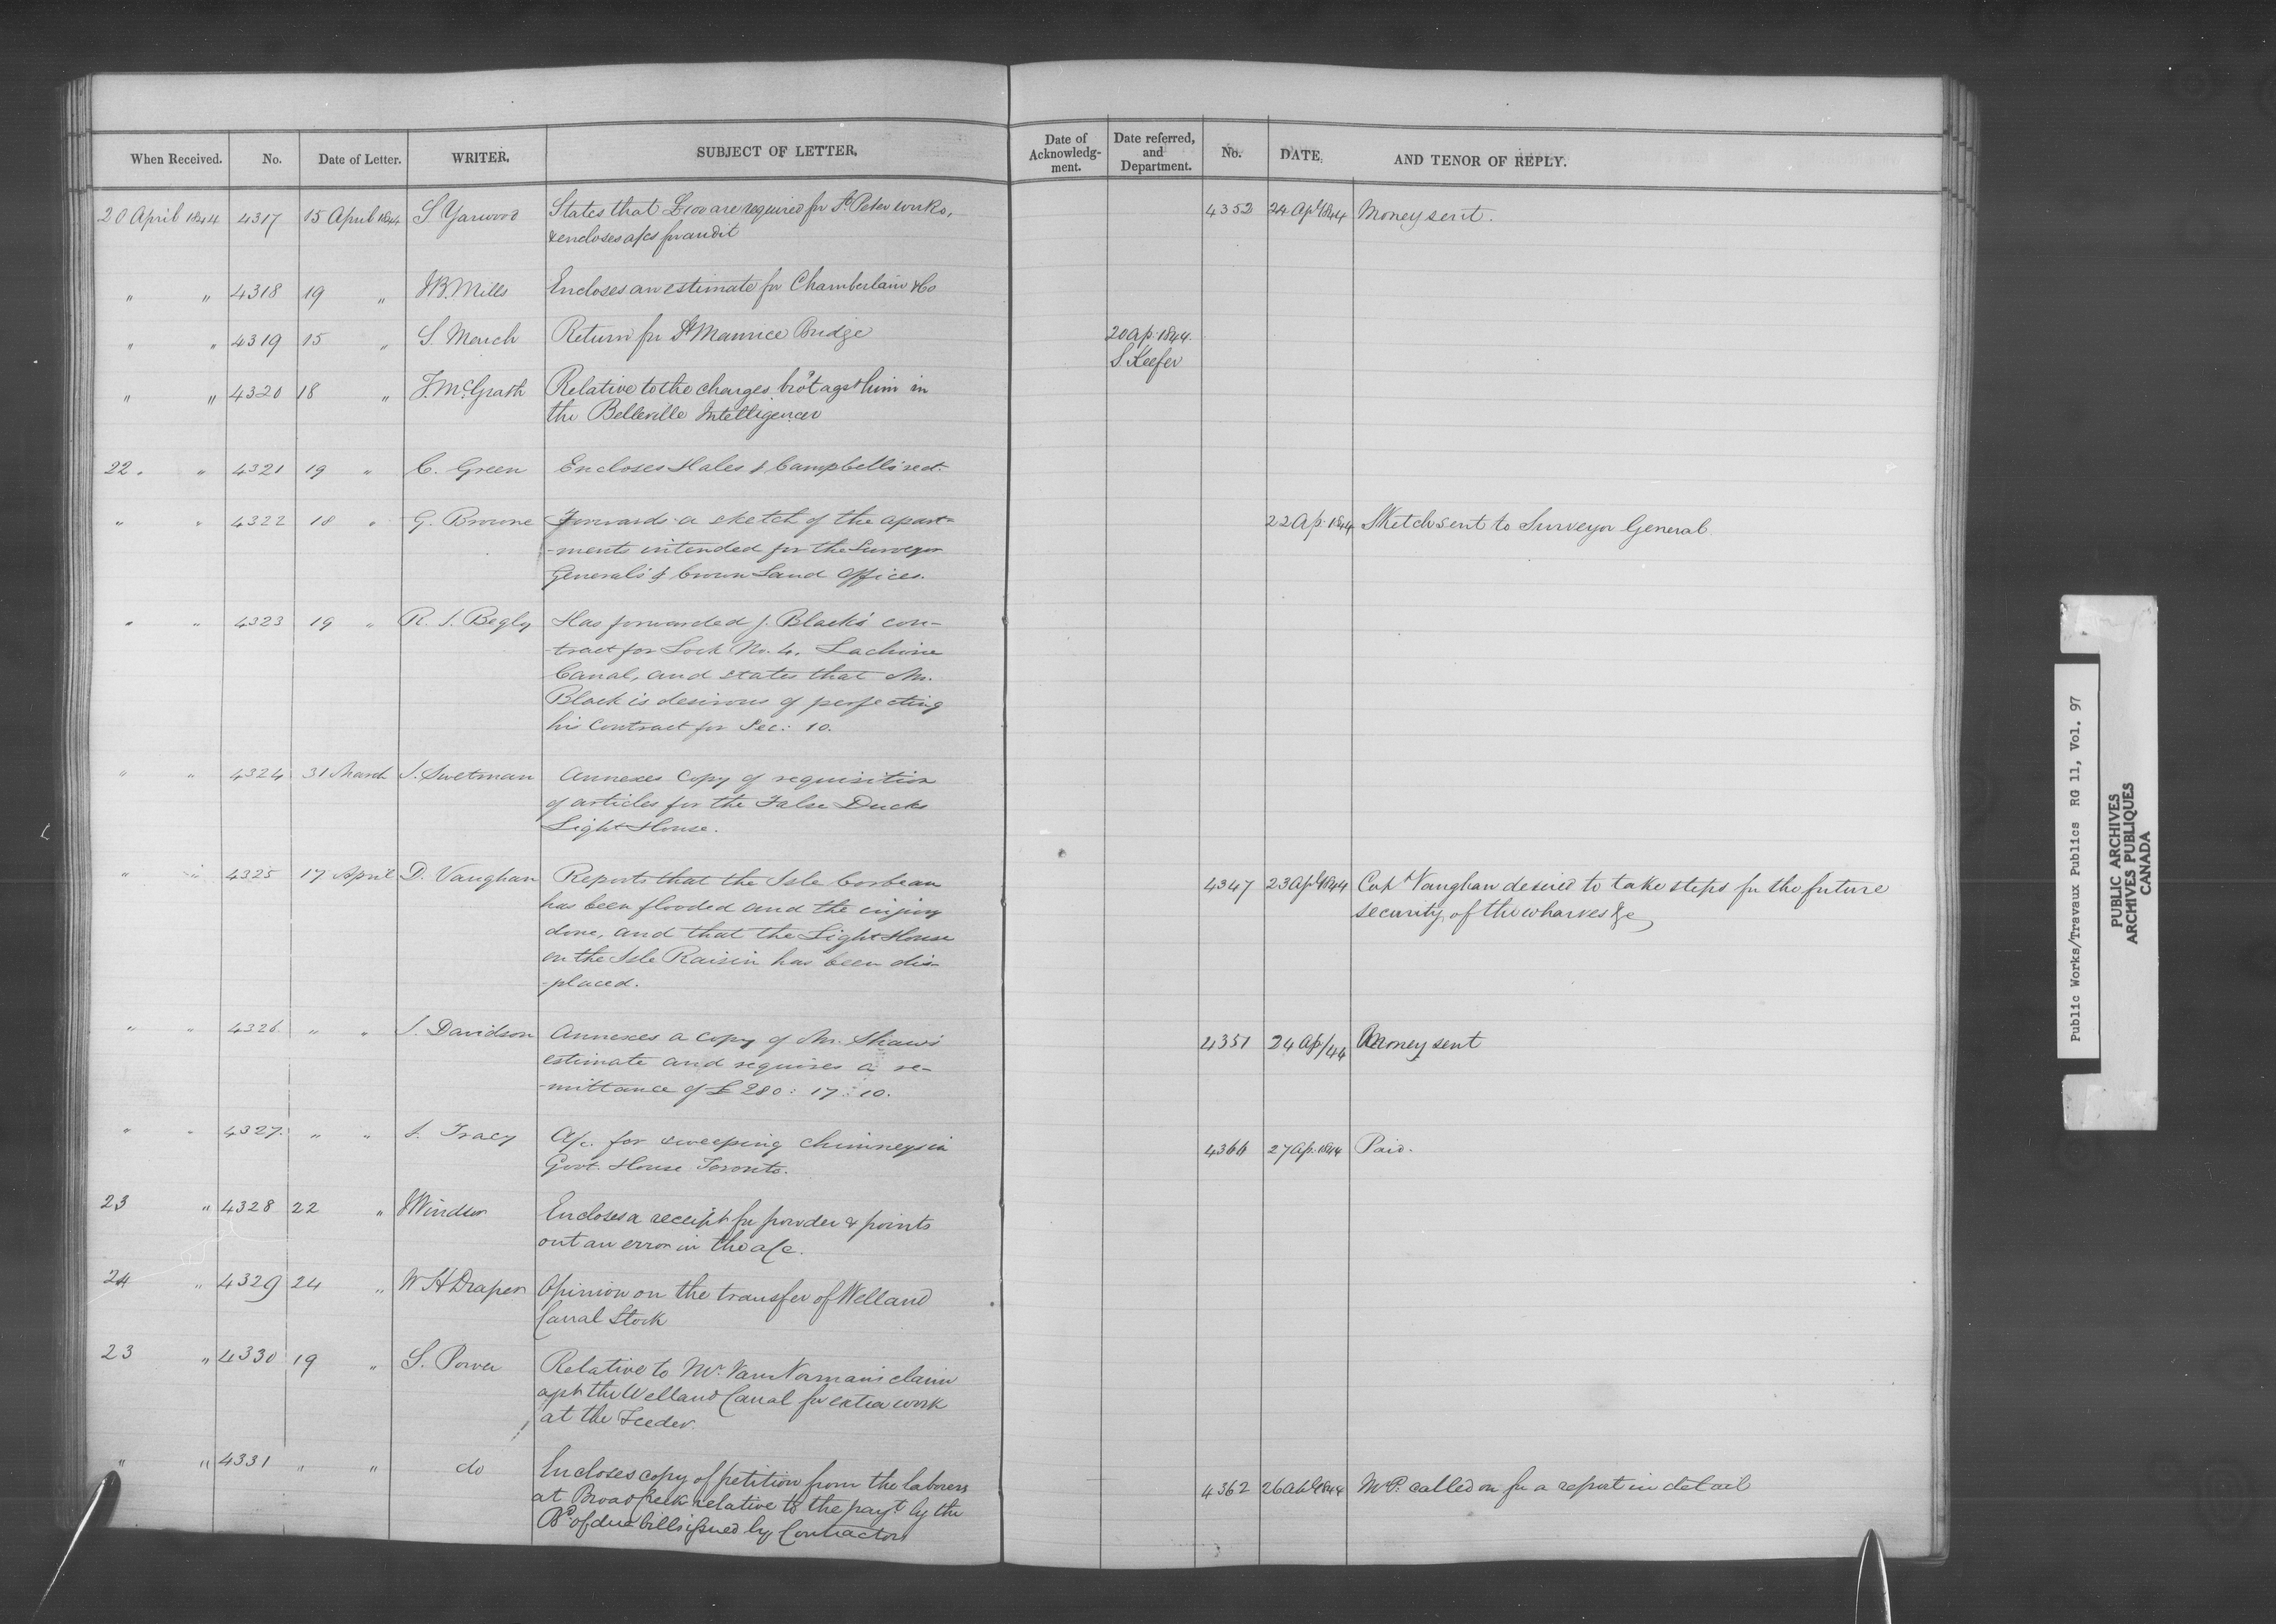 When Received. No. Date of Letter. WRITER. SUBJECT OF LETTER.
Date of Acknowledg-ment. Date referred, and Department. No. DATE, AND TENOR OF REPLY.
20 April 1844 4317 15 April 1844 S Yarwood States that £100 are required for St Peter works, 4352 24 Apl 1844 Money sent.
& encloses a/cs for audit
" " 4318 19 " JB. Mills Encloses an estimate for Chamberlain & Co
" " 4319 15 " S. March Return for St Maurice Bridge 20 Ap. 1844.
S. Keefer
" " 4320 18 " T. McGrath Relative to the charges bro't agst him in
the Belleville Intelligencer
22. " 4321 19 " C. Green Encloses Hales & Campbell's rect.
" " 4322 18 " G. Browne Forwards a sketch of the apart= 22 Ap. 1844 Sketch sent to Surveyor General
-ments intended for the Surveyor
General's & Crown Land Offices.
" " 4323 19 " R. S. Begly Has forwarded J. Black's con-
-tract for Lock No. 4. Lachine
Canal, and states that Mr.
Black is desirous of perfecting
his Contract for Sec: 10.
" " 4324 31 March J. Swetman Annexes Copy of requisition
of articles for the False Ducks
Light House.
" " 4325 17 April D. Vaughan Reports that the Isle Corbeau 4347 23 Apl 1844 Capt Vaughan desired to take steps for the future
has been flooded and the injury security of the wharves &c
done, and that the Light House
on the Isle Raisin has been dis-
-placed.
" " 4326 " " J. Davidson Annexes a copy of Mr. Shaw's 4351 24 Ap/44 Money sent
estimate and requires a re-
-mittance of £280: 17: 10.
" " 4327. " " S. Tracy A/c. for sweeping chimneys in 4366 27 Ap. 1844 Paid.
Govt. House Toronto.
23 " 4328 22 " J Windsor Encloses a receipt for powder & points
out an error in the a/c.
24 " 4329 24 " W H Draper Opinion on the transfer of Welland
Canal Stock
23 " 4330 19 " S. Power Relative to Mr. Van Norman's claim
agst the Welland Canal for extra work
at the Feeder.
" " 4331 " " do Encloses copy of petition from the laborers 4362 26 Apl 1844 Mr P. called on for a report in detail
at Broad Creek relative to the payt by the
Bd of due bills issued by Contractors
Public Works/Travaux Publics RG 11, Vol. 97
PUBLIC ARCHIVES
ARCHIVES PUBLIQUES
CANADA